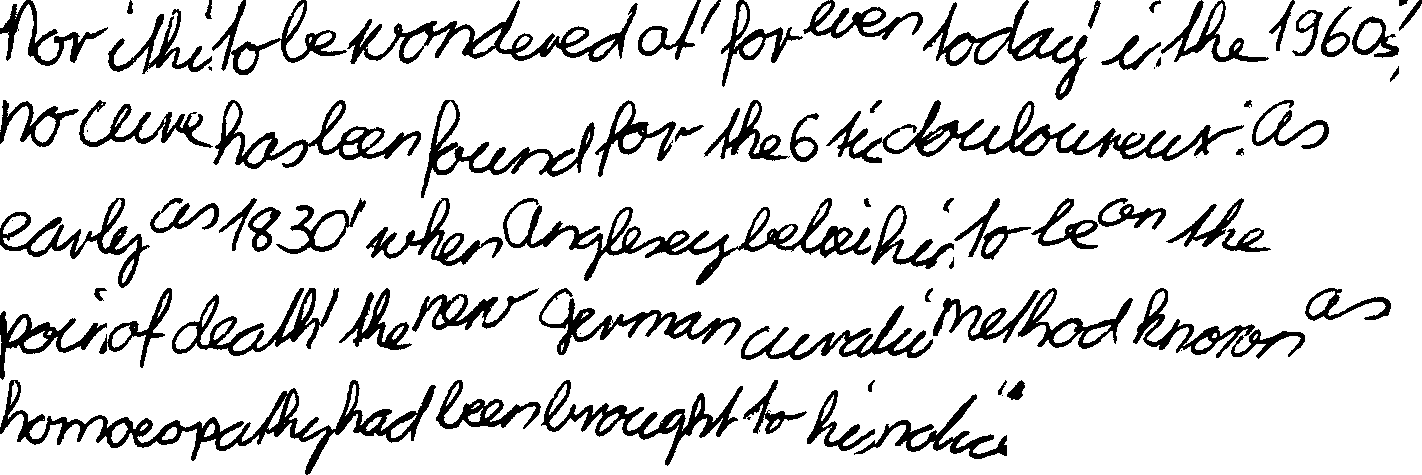 Nor is this to be wondered at' for even today in the 1960s,'
no cure has been found for the 6 tic douloureux. As
early as 1830' when Anglesey belie his to be on the
poin of death' the new German curative method known as
homoeopathy had been brought to his notice."